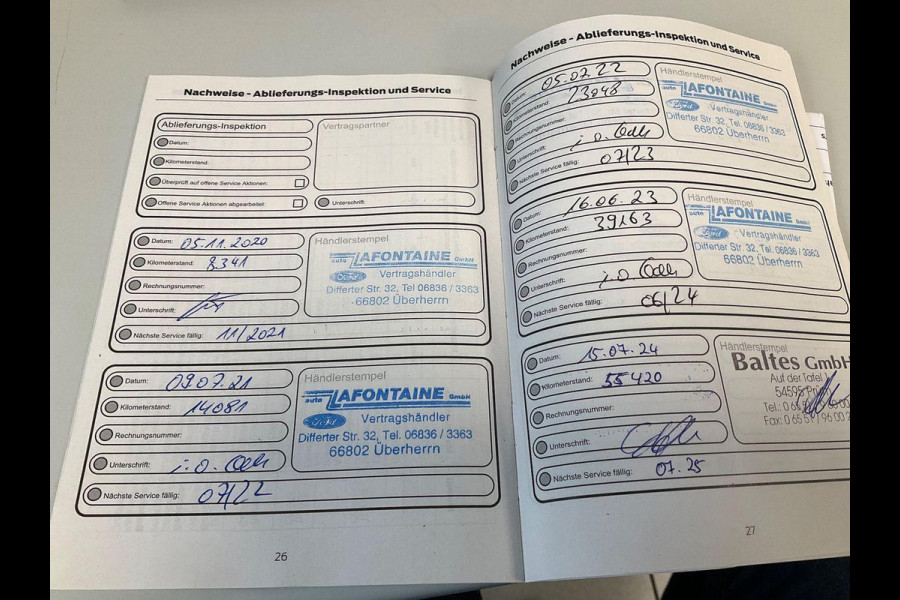 Nachweise - Ablieferungs-Inspektion und Service
Ablieferungs-Inspektion
Vertragspartner
Datum:
Kilometerstand:
Überprüft auf offene Service Aktionen:
Offene Service Aktionen abgearbeitet:
Unterschrift:
Datum: 05.11.2020
Kilometerstand: 8341
Rechnungsnummer:
Unterschrift:
Nächste Service fällig: 11/2021
Händlerstempel
auto LAFONTAINE GmbH
Ford Vertragshändler
Differter Str. 32, Tel 06836 / 3363
66802 Überherrn
Datum: 09.07.21
Kilometerstand: 14081
Rechnungsnummer:
Unterschrift: i.o.
Nächste Service fällig: 07/22
Händlerstempel
auto LAFONTAINE GmbH
Ford Vertragshändler
Differter Str. 32, Tel. 06836 / 3363
66802 Überherrn
26
Nachweise - Ablieferungs-Inspektion und Service
Datum: 05.07.22
Kilometerstand: 23948
Rechnungsnummer:
Unterschrift: i.o.
Nächste Service fällig: 07/23
Händlerstempel
auto LAFONTAINE GmbH
Ford Vertragshändler
Differter Str. 32, Tel. 06836 / 3363
66802 Überherrn
Datum: 16.06.23
Kilometerstand: 39163
Rechnungsnummer:
Unterschrift: i.o.
Nächste Service fällig: 06/24
Händlerstempel
auto LAFONTAINE GmbH
Ford Vertragshändler
Differter Str. 32, Tel. 06836 / 3363
66802 Überherrn
Datum: 15.07.24
Kilometerstand: 55420
Rechnungsnummer:
Unterschrift:
Nächste Service fällig: 07.25
Händlerstempel
Baltes GmbH
Auf der Tafel
54595
Tel.: 0 65
Fax: 0 65 51 / 96 00 2
27